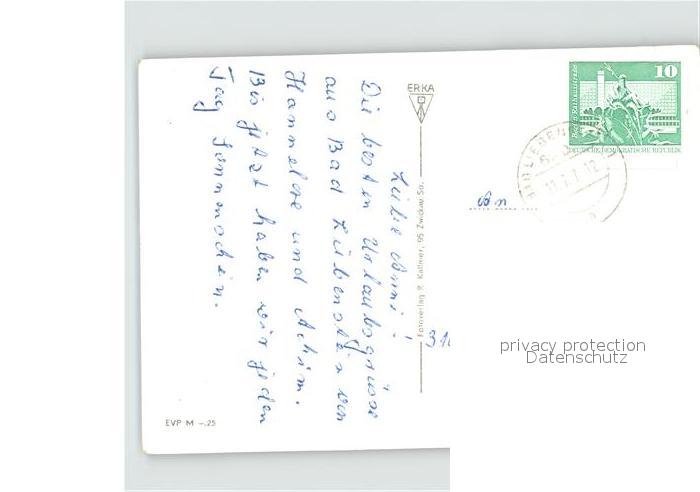 Liebe Anni!
Die besten Urlaubsgrüsse
aus Bad Liebenstein von
Hannelore und Achim.
Bis jetzt haben wir jeden
Tag Sonnenschein.
ERKA
Fotoverlag R. Kallmer, 95 Zwickau Sa.
EVP M -.25
10
DEUTSCHE DEMOKRATISCHE REPUBLIK
An
privacy protection
Datenschutz